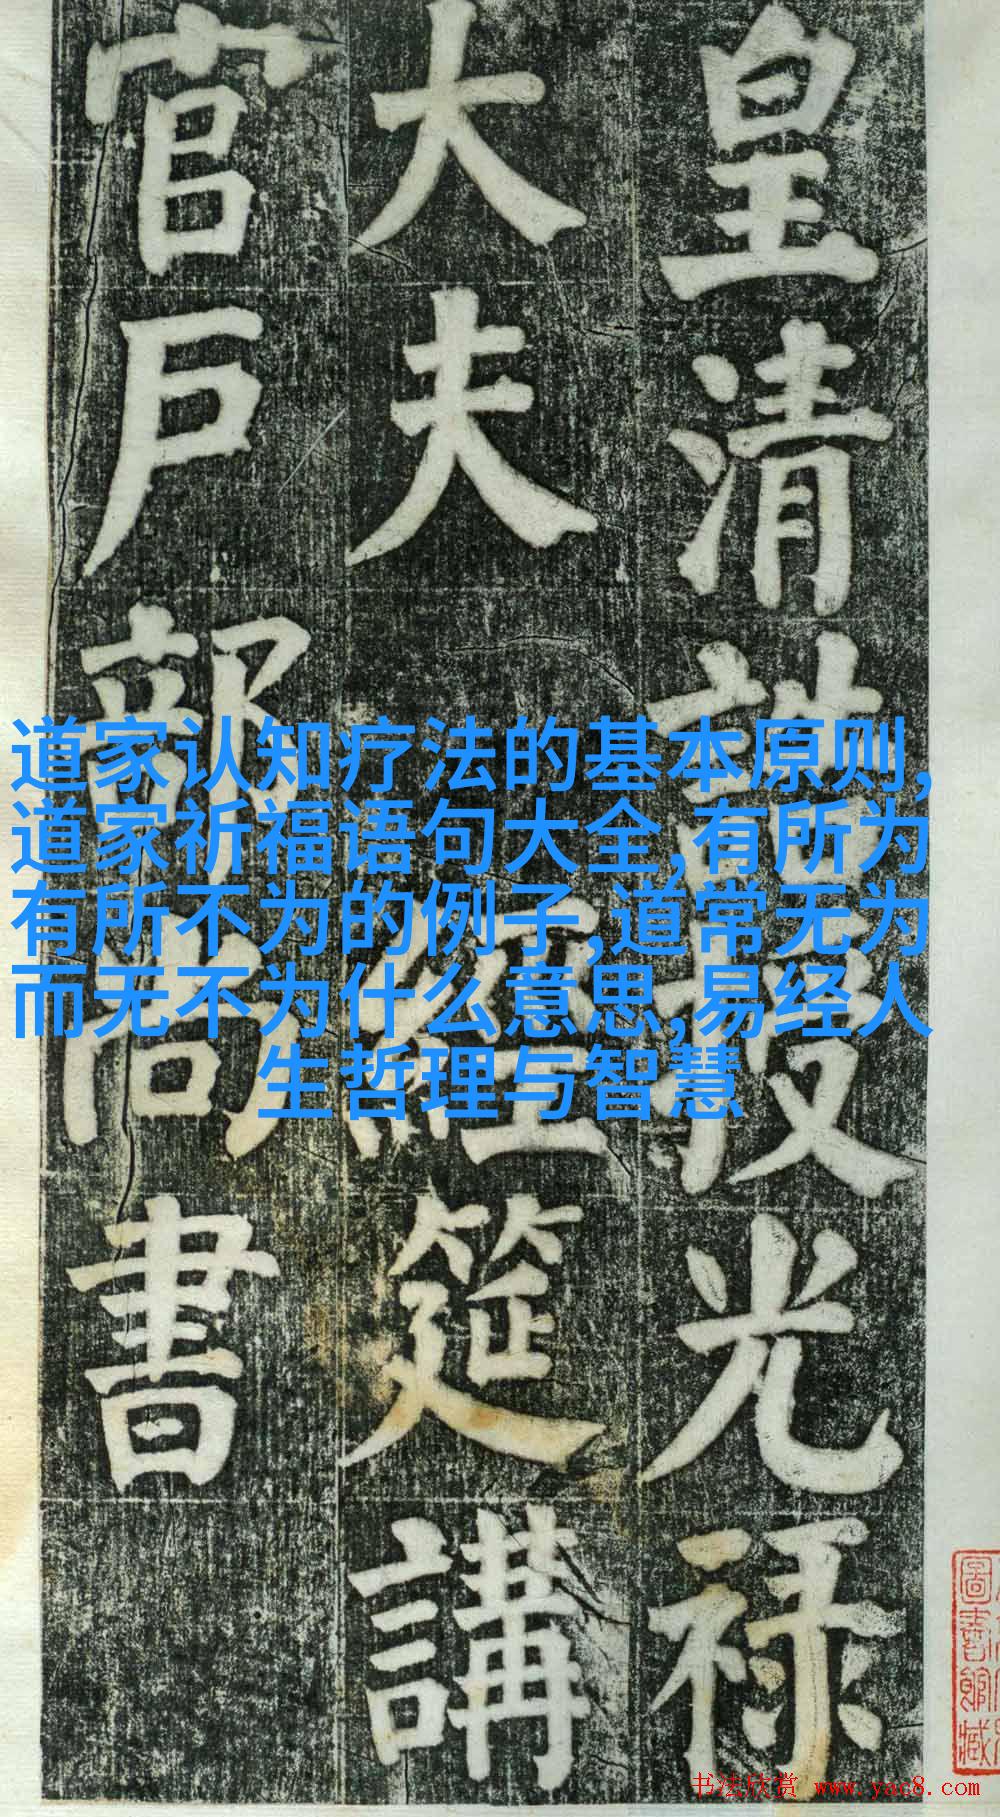 皇清誥授光禄
大夫經筵講
官戶部尚書
道家认知疗法的基本原则,
道家祈福语句大全,有所为
有所不为的例子,道常无为
而无不为什么意思,易经人
生哲理与智慧
圖書館藏
书法欣赏 www.yac8.com